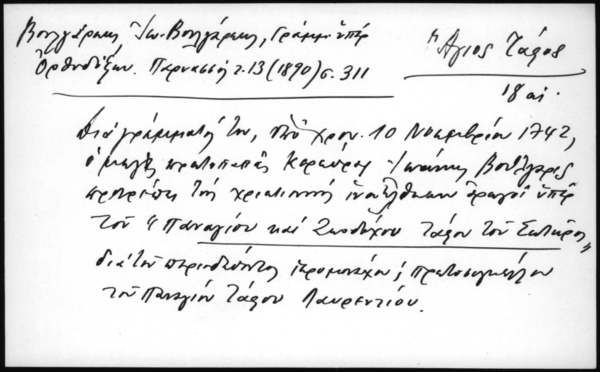 Βουλγάρεως Ἰω. Βουλγάρεως, Γράμμα ὑπὲρ
Ὀρθοδόξων. Παρνασσὸς τ. 13 (1890) σ. 311
Ἅγιος Τάφος
18 αἰ.
Διὰ γράμματός του, ὑπὸ χρον. 10 Νοεμβρίου 1742,
ὁ μέγας πρωτοπαπᾶς Κερκύρας Ἰωάννης Βούλγαρις
προτρέπει τοὺς χριστιανοὺς ἵνα ἔλθωσιν ἀρωγοὶ ὑπὲρ
τοῦ "Παναγίου καὶ Ζωοδόχου Τάφου τοῦ Σωτῆρος"
διὰ τοῦ περιοδεύοντος ἱερομονάχου; πρωτοσυγκέλλου
τοῦ Παναγίου Τάφου Λαυρεντίου.